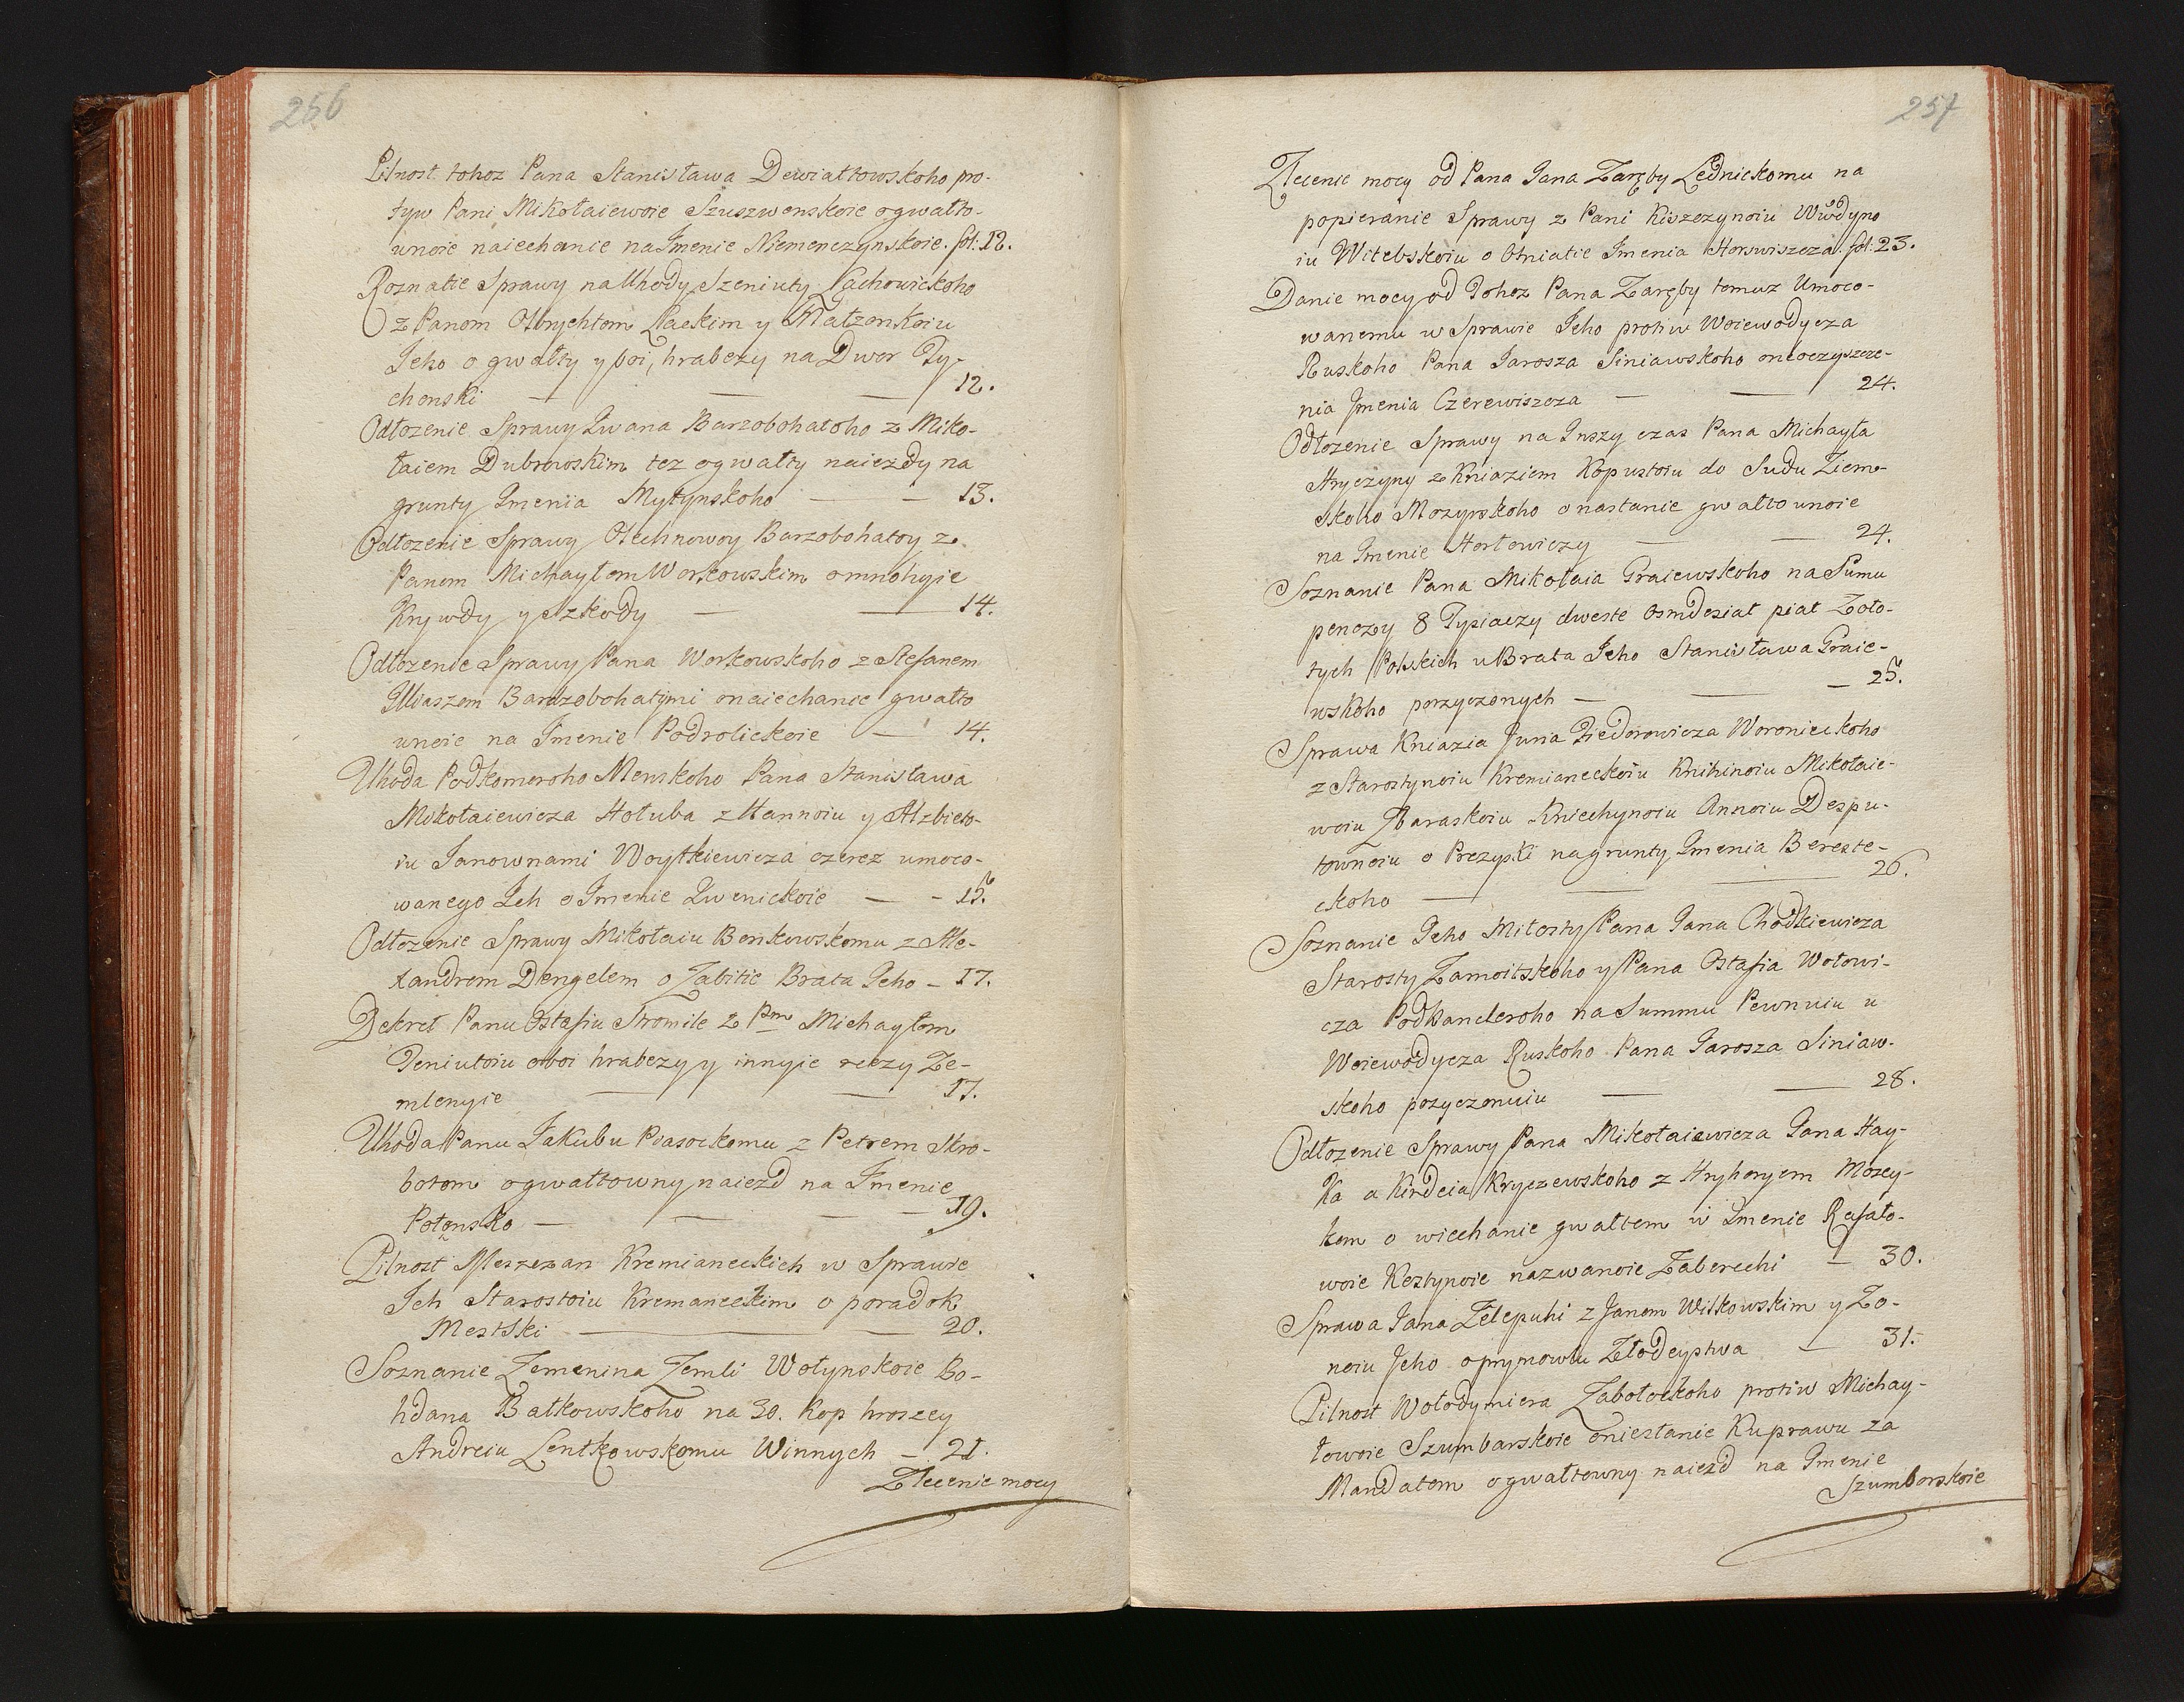 256
Pilnost tohoz Pana Stanisława Dewiałtowskoho pro-
tyw Pani Mikołaiewoie Szuszwenskoie o gwałto-
wnoie naiechanie na Imenie Niemenczynskoie. fol: 12.
Roznatie Sprawy na Uhody Szeniuty Lachowickoho
z Panom Olbrychtom Łackim y Małzonkoiu
Jeho o gwałty y boi, hrabezy na Dwor Ty-
chonski — — — 12.
Odłozenie Sprawy Iwana Barzobohatoho z Miko-
łaiem Dubrowskim tez o gwałty naiezdy na
grunty Imenia Mytynskoho — — 13.
Odłozenie Sprawy Olechnowoy Barzobohatoy z
Panem Michayłom Workowskim o mnohyie
Krywdy y Szkody — — 14.
Odłozenie Sprawy Pana Workowskoho z Stefanem
Illiaszem Barzobohatymi o naiechanie gwałto
wnoie na Imenie Podrolickoie — 14.
Uhoda Podkomoroho Menskoho Pana Stanisława
Mikołaiewicza Hołuba z Hannoiu y Alzbieto-
iu Janownami Woytkiewicza czerez umoco-
wanego Ich o Imenie Iwenickoie — - 15.
Odłozenie Sprawy Mikołaiu Benkowskomu z Ale-
xandrom Dengelem o Zabitie Brata Jeho - 17.
Dekret Panu Ostafiu Stromile z Pm Michayłom
Jeniutoiu o boi hrabezy y innyie reczy Ze-
mlenyie — — 17.
Uhoda Panu Jakubu Piasockomu z Petrem Skro-
botom o gwałtowny naiezd na Imenie
Połonsko — — — — 19.
Pilnost Meszczan Kremianeckich w Sprawie
Ich Starostoiu Kremaneckim o poradok
Mestski — — 20.
Soznanie Zemenina Zemli Wołynskoie Bo-
hdana Bałkowskoho na 30. kop hroszey
Andreiu Lentkowskomu Winnych — 21.
Zlecenie mocy
257
Zlecenie mocy od Pana Jana Zaręby Lednickomu na
popieranie Sprawy z Pani Kiszczynoiu Wwodyno
iu Witebskoiu o Otniatie Imenia Horswiszcza. fol: 23.
Danie mocy od Tohoz Pana Zaręby tomuz Umoco-
wanemu w Sprawie Jeho protiw Woiewodycza
Ruskoho Pana Jarosza Siniawskoho o neoczyszcze-
nia Imenia Czerewiszcza — — 24.
Odłozenie Sprawy na Inszy czas Pana Michayła
Hryczyny z Kniaziem Kopustoiu do Sudu Ziem-
skoho Mozyrskoho o nastanie gwałtownoie
na Imenie Horłowiczy — — 24.
Soznanie Pana Mikołaia Graiewskoho na Sumu
penezy 8 Tysiaczy dweste Osmdesiat piat Zoło-
tych Polskich u Brata Jeho Stanisława Graie-
wskoho pozyczonych — — - 25.
Sprawa Kniazia Juria Fiedorowicza Woronieckoho
z Starostynoiu Kremianeckoiu Knihinoiu Mikołaie-
woiu Zbaraskoiu Kniechynoiu Annoiu Despu-
townoiu o Prezyski na grunty Imenia Bereste-
ckoho — — — 26.
Soznanie Jeho Miłosty Pana Jana Chodkiewicza
Starosty Zamoitskoho y Pana Ostafia Wołowi-
cza Podkancleroho na Summu Pewnuiu u
Woiewodycza Ruskoho Pana Jarosza Siniaw-
skoho pozyczonuiu — — 28.
Odłozenie Sprawy Pana Mikołaiewicza Jana Hay-
ka a Kirdeia Kryczewskoho z Hryhoryem Mozey-
kom o wiechanie gwałtem w Imenie Rafało-
woie Kestynoie nazwanoie Zaberechi — 30.
Sprawa Jana Zelepuhi z Janem Witkowskim y Zo-
noiu Jeho o prymowku Złodeystwa — 31.
Pilnost Wołodymiera Zabołockoho protiw Michay-
łowoie Szumbarskoie o niestanie Ku prawu za
Mandatom o gwałtowny naiezd na Imenie
Szumborskoie